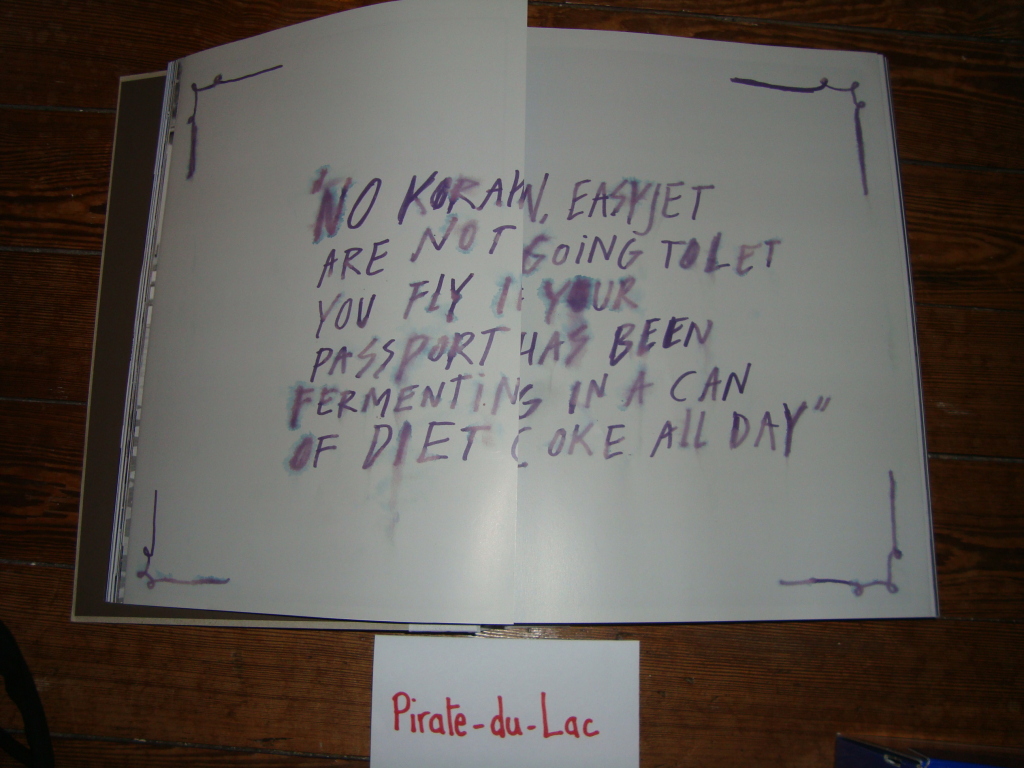 "NO KORAHN, EASYJET
ARE NOT GOING TO LET
YOU FLY IF YOUR
PASSPORT HAS BEEN
FERMENTING IN A CAN
OF DIET COKE All DAY"
Pirate-du-Lac